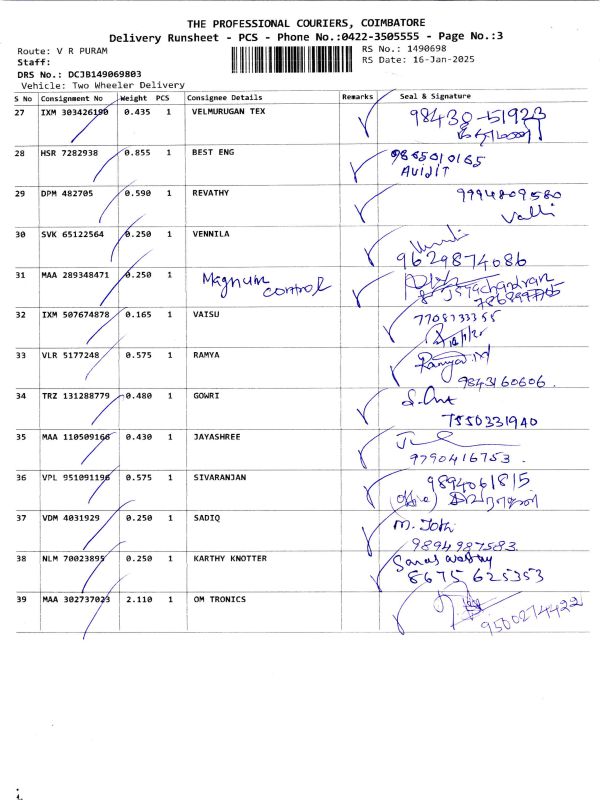 THE PROFESSIONAL COURIERS, COIMBATORE
Delivery Runsheet - PCS - Phone No.:0422-3505555 - Page No.:3
Route: V R PURAM
RS No.: 1490698
Staff:
RS Date: 16-Jan-2025
DRS No.: DCJB149069803
Vehicle: Two Wheeler Delivery
S No Consignment No Weight PCS Consignee Details Remarks Seal & Signature
27 IXM 303426190 0.435 1 VELMURUGAN TEX 98430-51923
28 HSR 7282938 0.855 1 BEST ENG 9865010165
AVIJIT
29 DPM 482705 0.590 1 REVATHY 9994809580
Valli
30 SVK 65122564 0.250 1 VENNILA
9629874086
31 MAA 289348471 0.250 1 Magnum control
Jeyachandran
32 IXM 507674878 0.165 1 VAISU 7708733355
33 VLR 5177248 0.575 1 RAMYA Ramya.M
9843160606.
34 TRZ 131288779 0.480 1 GOWRI
7550331940
35 MAA 110509166 0.430 1 JAYASHREE
9790416753.
36 VPL 951091196 0.575 1 SIVARANJAN 9894061815
(Office) சிவராஜன்
37 VDM 4031929 0.250 1 SADIQ M. Jothi
9894987583.
38 NLM 70023895 0.250 1 KARTHY KNOTTER Saraswathy
8675625353
39 MAA 302737023 2.110 1 OM TRONICS
9500274422